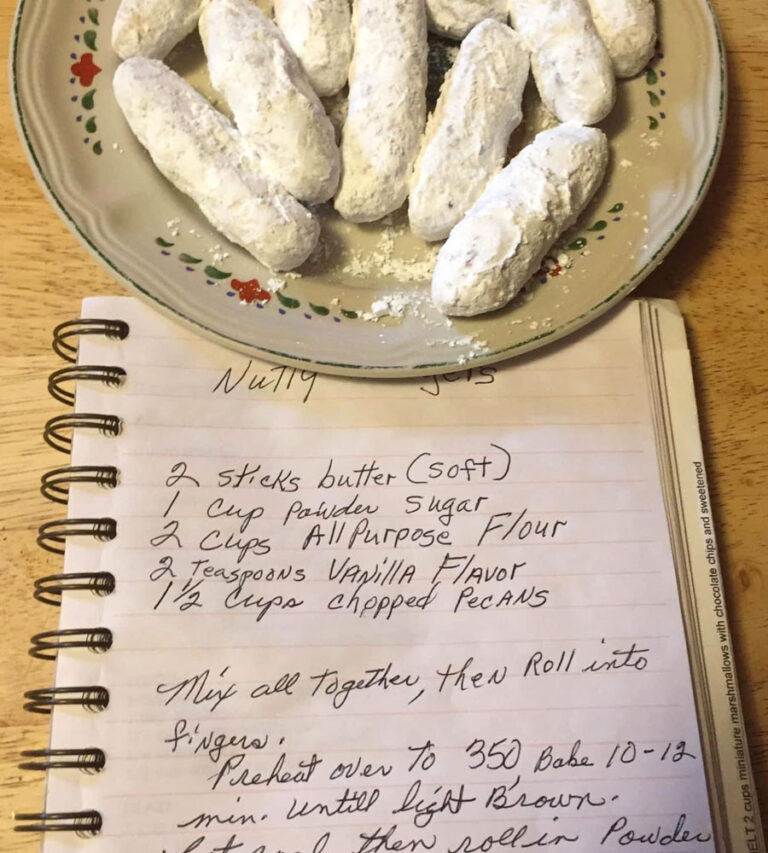 Nutly
2 sticks butter (soft)
1 cup powder sugar
2 cups All Purpose Flour
2 Teaspoons Vanilla Flavor
1 1/2 cups chopped Pecans
Mix all together, then Roll into
fingers.
Preheat oven to 350, Bake 10-12
min. untill light Brown.
then roll in Powder
ELT 2 cups miniature marshmallows with chocolate chips and sweetened